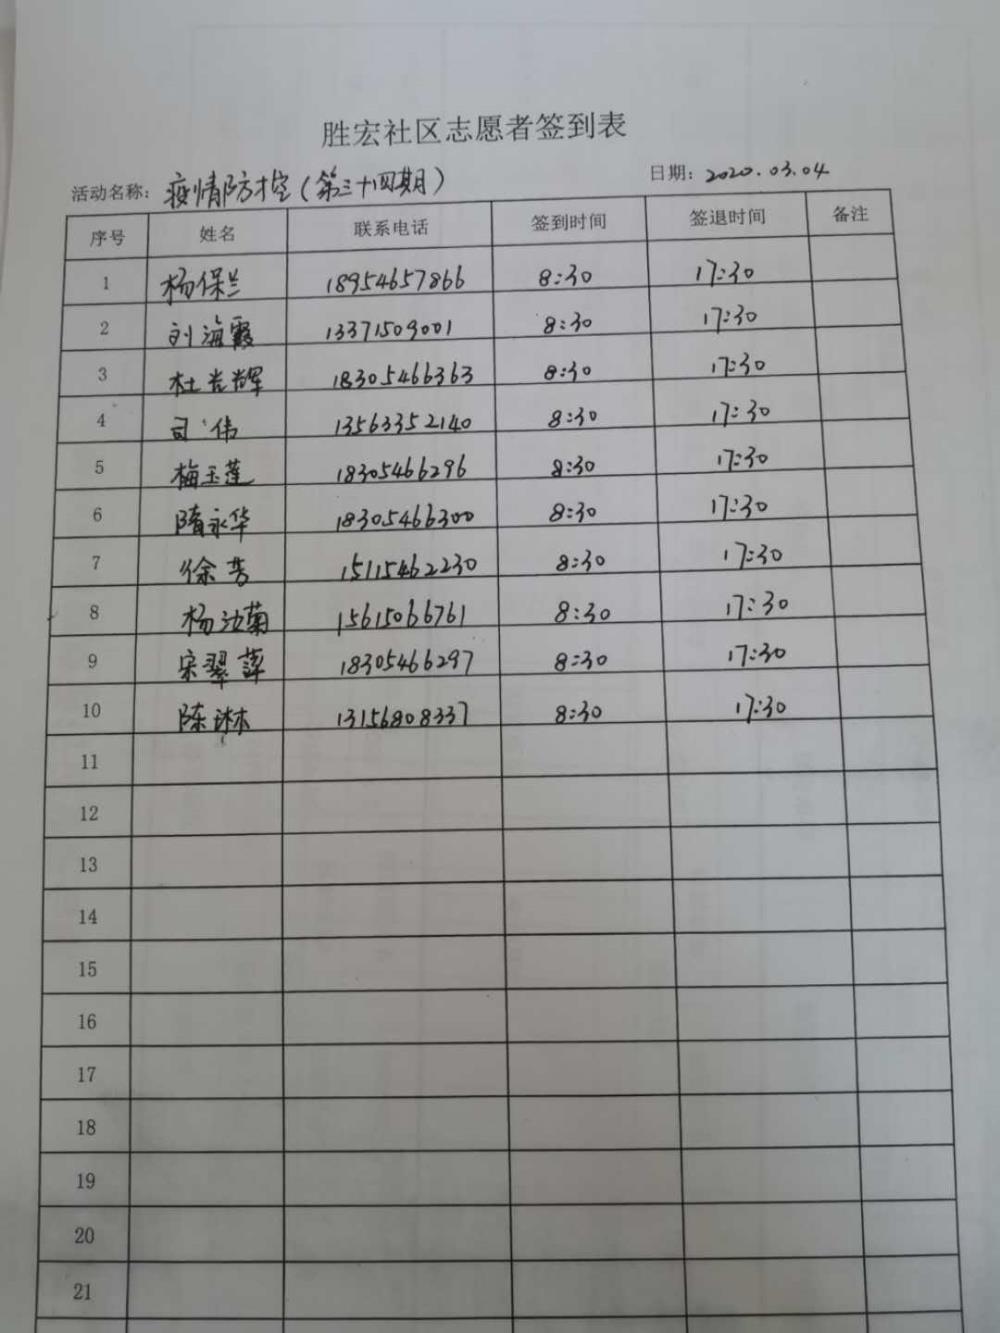 胜宏社区志愿者签到表
活动名称：疫情防控（第三十四期） 日期：2020.03.04
序号 姓名 联系电话 签到时间 签退时间 备注
1 杨保兰 18954657866 8:30 17:30
2 刘海霞 13371509001 8:30 17:30
3 杜光辉 18305466363 8:30 17:30
4 司伟 13563352140 8:30 17:30
5 梅玉莲 18305466296 8:30 17:30
6 隋永华 18305466300 8:30 17:30
7 徐芳 15115462230 8:30 17:30
8 15615066761 8:30 17:30
9 宋翠萍 18305466297 8:30 17:30
10 陈淋 13156808337 8:30 17:30
11
12
13
14
15
16
17
18
19
20
21